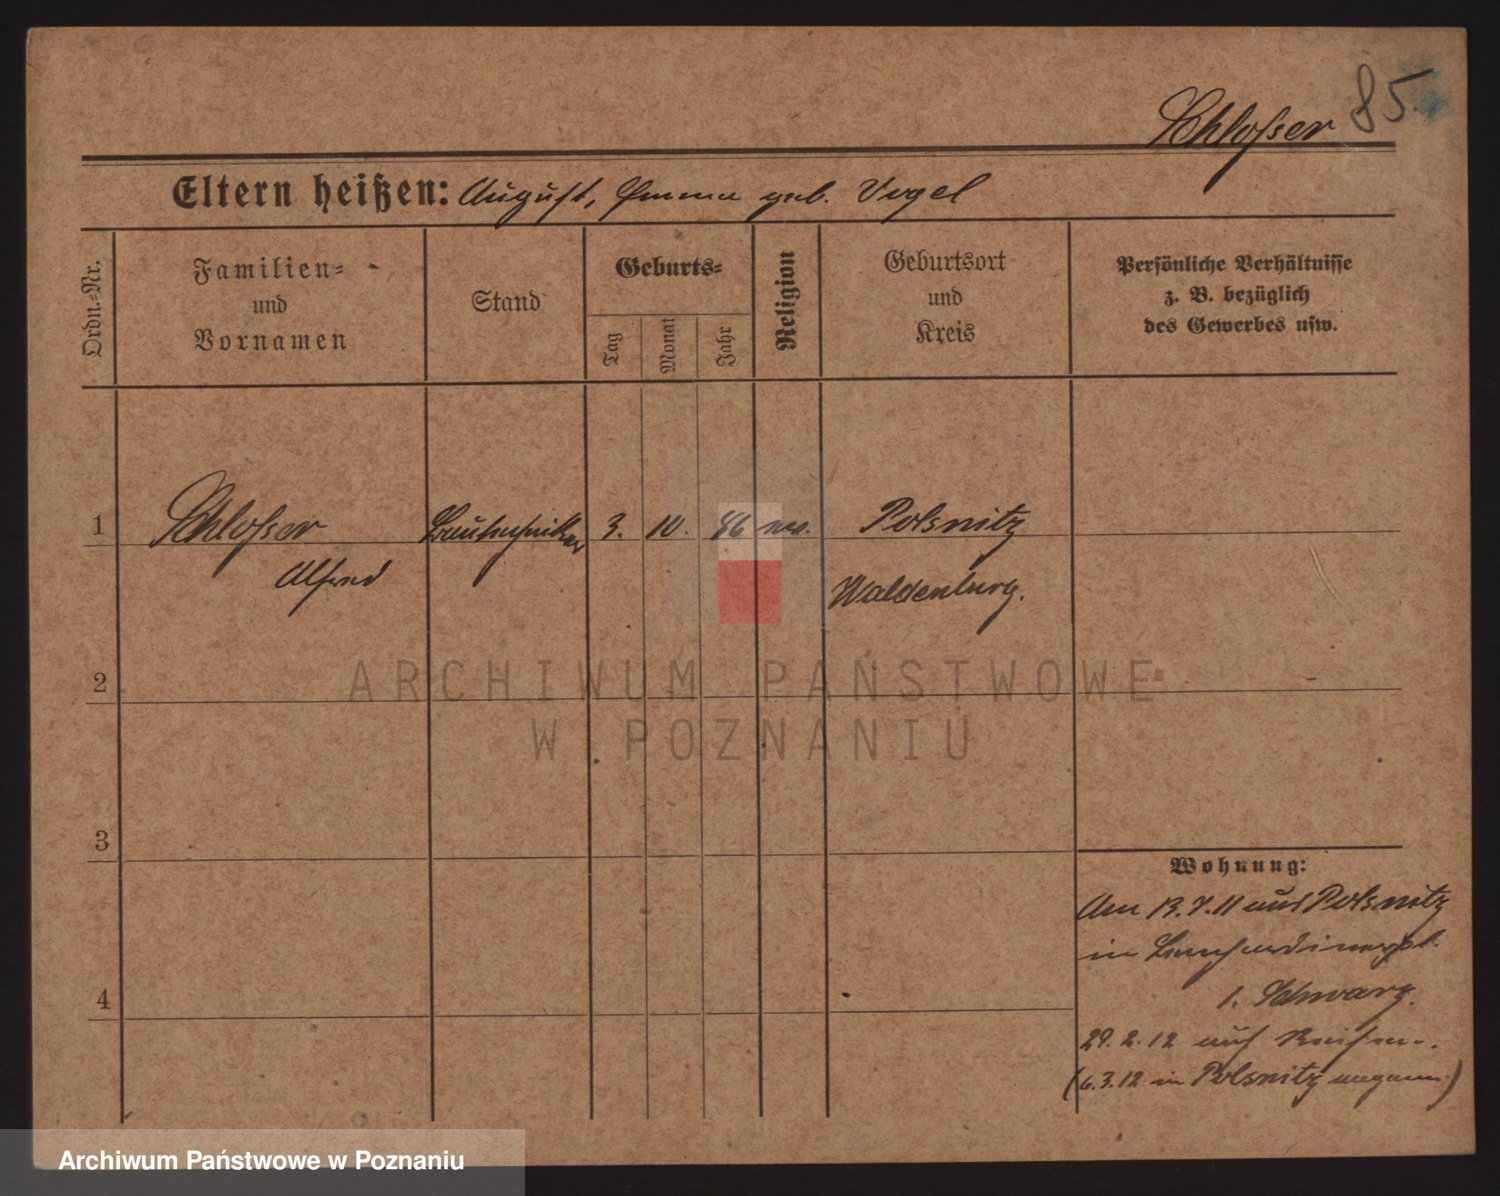 Schlosser 85.
Eltern heißen: August, Emma geb. Vogel
Ordn.=Nr.
Familien=
und
Vornamen
Stand
Geburts=
Tag
Monat
Jahr
Religion
Geburtsort
und
Kreis
Persönliche Verhältnisse
z. B. bezüglich
des Gewerbes usw.
1 Schlosser Bautechniker 3. 10. 86 ev. Polsnitz
Alfred Waldenburg.
2
ARCHIWUM PAŃSTWOWE
W POZNANIU
3
Wohnung:
Am 13.7.11 aus Polsnitz
in
4
1. Schwarz.
29.2.12 auf Reisen.
(6.3.12 in Polsnitz angem.)
Archiwum Państwowe w Poznaniu